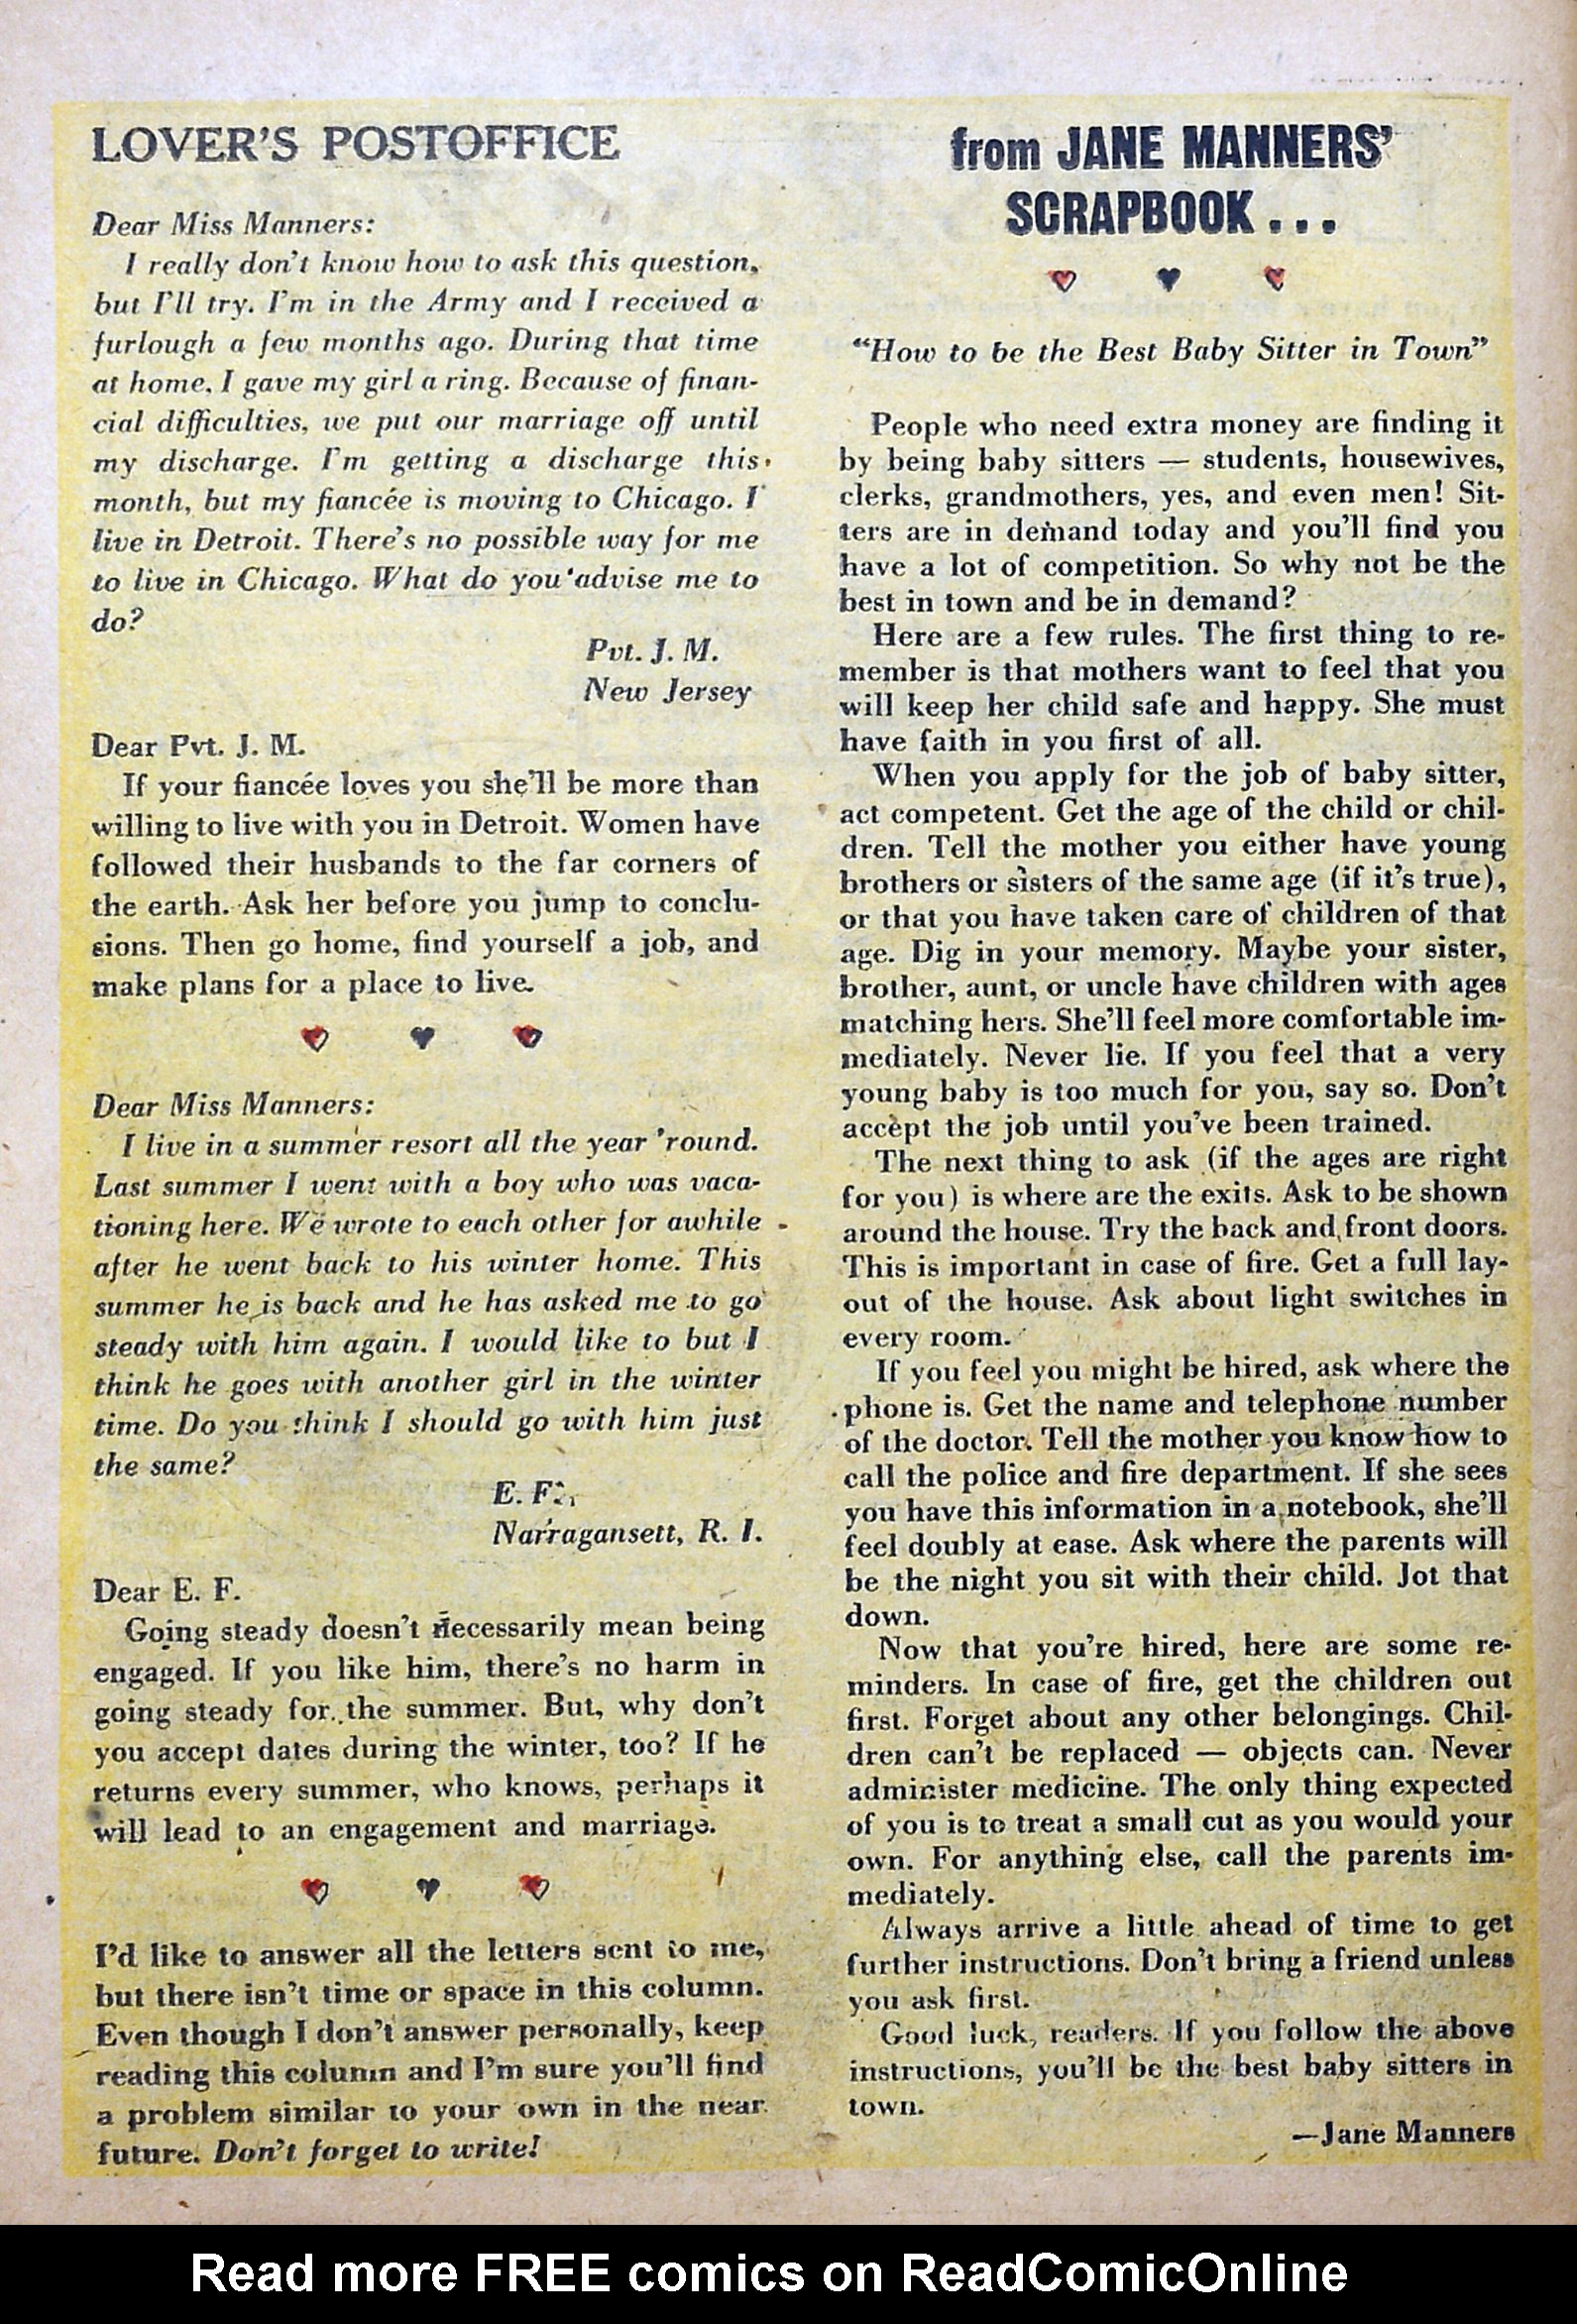 LOVER'S POSTOFFICE
Dear Miss Manners:
I really don't know how to ask this question,
but I'll try. I'm in the Army and I received a
furlough a few months ago. During that time
at home, I gave my girl a ring. Because of finan-
cial difficulties, we put our marriage off until
my discharge. I'm getting a discharge this
month, but my fiancée is moving to Chicago. I
live in Detroit. There's no possible way for me
to live in Chicago. What do you advise me to
do?
Pvt. J. M.
New Jersey
Dear Pvt. J. M.
If your fiancée loves you she'll be more than
willing to live with you in Detroit. Women have
followed their husbands to the far corners of
the earth. Ask her before you jump to conclu-
sions. Then go home, find yourself a job, and
make plans for a place to live.
Dear Miss Manners:
I live in a summer resort all the year 'round.
Last summer I went with a boy who was vaca-
tioning here. We wrote to each other for awhile
after he went back to his winter home. This
summer he is back and he has asked me to go
steady with him again. I would like to but I
think he goes with another girl in the winter
time. Do you think I should go with him just
the same?
E. F.
Narragansett, R. I.
Dear E. F.
Going steady doesn't necessarily mean being
engaged. If you like him, there's no harm in
going steady for the summer. But, why don't
you accept dates during the winter, too? If he
returns every summer, who knows, perhaps it
will lead to an engagement and marriage.
I'd like to answer all the letters sent to me,
but there isn't time or space in this column.
Even though I don't answer personally, keep
reading this column and I'm sure you'll find
a problem similar to your own in the near
future. Don't forget to write!
from JANE MANNERS'
SCRAPBOOK...
"How to be the Best Baby Sitter in Town"
People who need extra money are finding it
by being baby sitters — students, housewives,
clerks, grandmothers, yes, and even men! Sit-
ters are in demand today and you'll find you
have a lot of competition. So why not be the
best in town and be in demand?
Here are a few rules. The first thing to re-
member is that mothers want to feel that you
will keep her child safe and happy. She must
have faith in you first of all.
When you apply for the job of baby sitter,
act competent. Get the age of the child or chil-
dren. Tell the mother you either have young
brothers or sisters of the same age (if it's true),
or that you have taken care of children of that
age. Dig in your memory. Maybe your sister,
brother, aunt, or uncle have children with ages
matching hers. She'll feel more comfortable im-
mediately. Never lie. If you feel that a very
young baby is too much for you, say so. Don't
accept the job until you've been trained.
The next thing to ask (if the ages are right
for you) is where are the exits. Ask to be shown
around the house. Try the back and front doors.
This is important in case of fire. Get a full lay-
out of the house. Ask about light switches in
every room.
If you feel you might be hired, ask where the
phone is. Get the name and telephone number
of the doctor. Tell the mother you know how to
call the police and fire department. If she sees
you have this information in a notebook, she'll
feel doubly at ease. Ask where the parents will
be the night you sit with their child. Jot that
down.
Now that you're hired, here are some re-
minders. In case of fire, get the children out
first. Forget about any other belongings. Chil-
dren can't be replaced — objects can. Never
administer medicine. The only thing expected
of you is to treat a small cut as you would your
own. For anything else, call the parents im-
mediately.
Always arrive a little ahead of time to get
further instructions. Don't bring a friend unless
you ask first.
Good luck, readers. If you follow the above
instructions, you'll be the best baby sitters in
town.
—Jane Manners
Read more FREE comics on ReadComicOnline